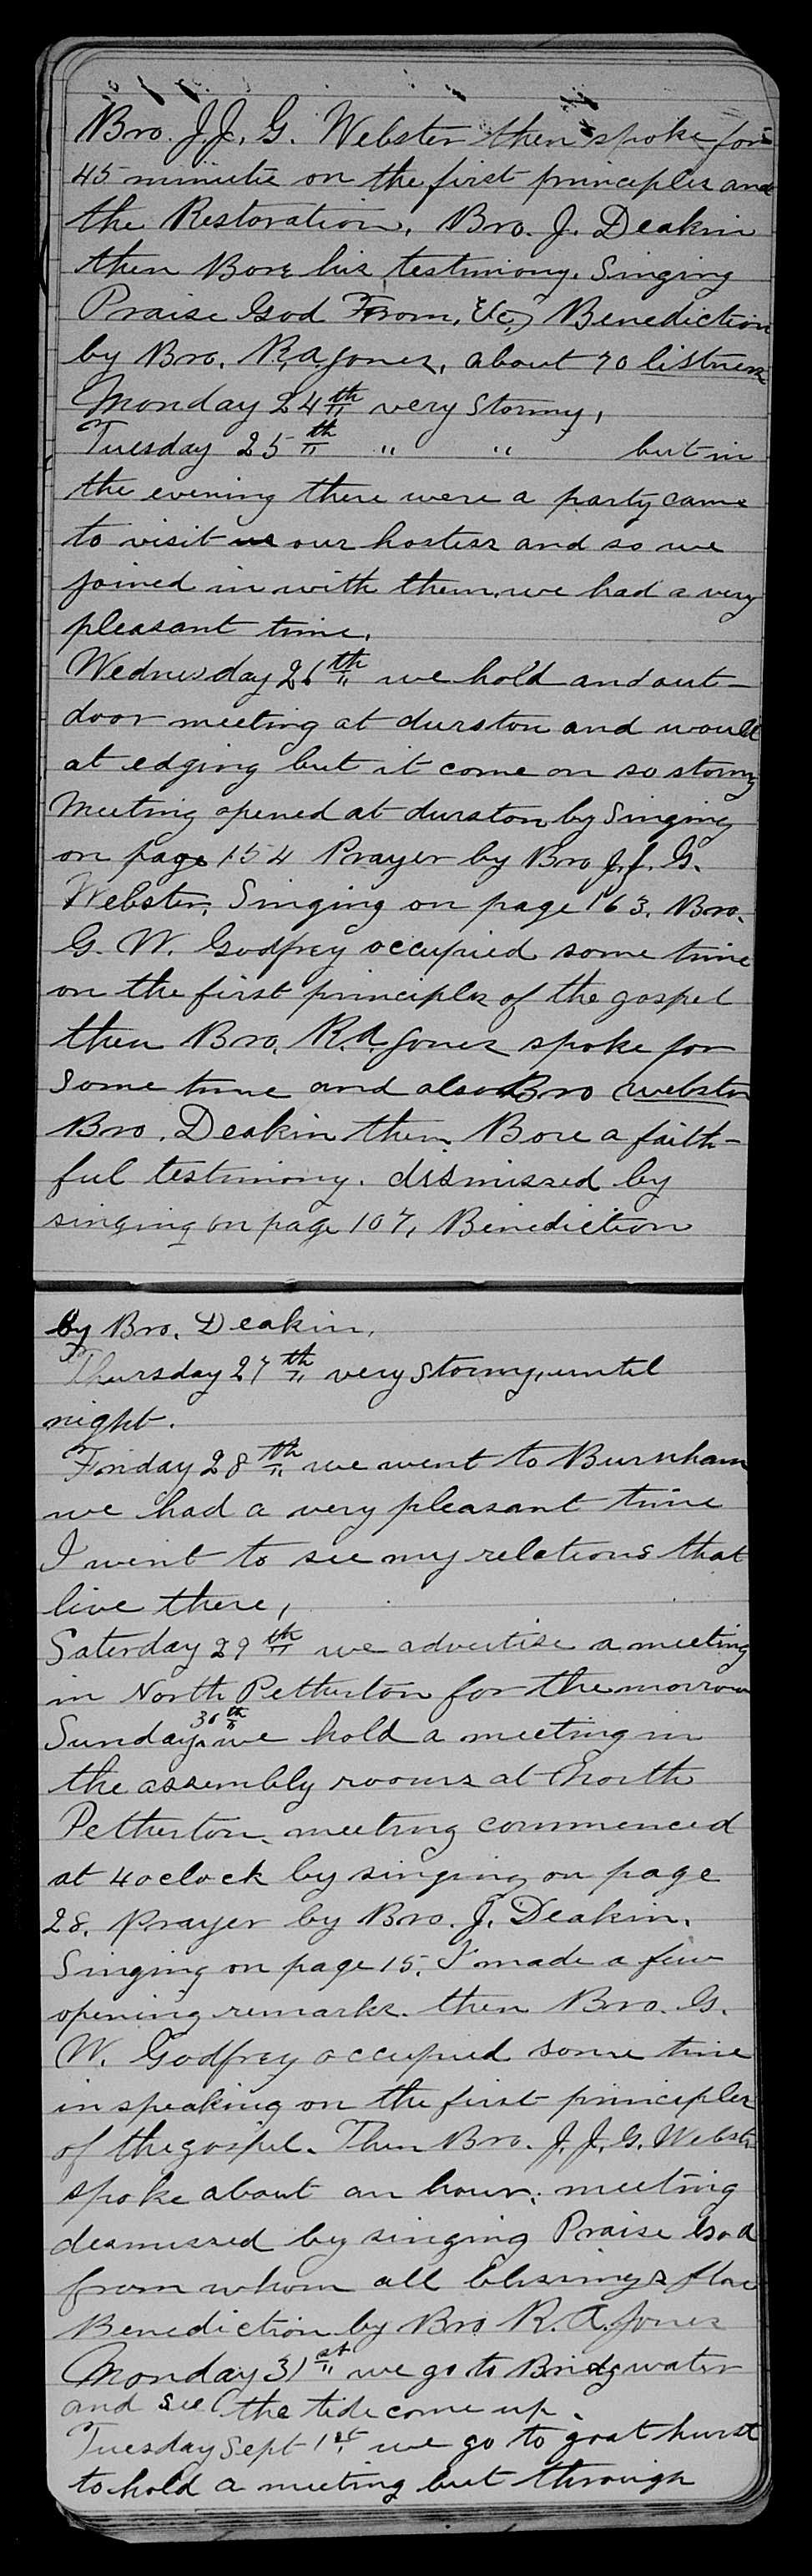 Bro. J.J. G. Webster then spoke for
45 minutes on the first principles and
the Restoration, Bro. J. Deakin
then Bore his testimony. Singing
Praise God From, &c, Benediction
by Bro. R.A. Jones, about 70 listners
Monday 24th very Stormy,
Tuesday 25th " " but in
the evening there were a party came
to visit us our hostess and so we
joined in with them, we had a very
pleasant time.
Wednesday 26th we hold and out-
door meeting at durston and would
at edging but it come on so stormy
Meeting opened at durston by Singing
on page 154 Prayer by Bro J.J. G.
Webster, Singing on page 163. Bro.
G. W. Godfrey occupied some time
on the first principles of the gospel
then Bro. R.A. Jones spoke for
Some time and also Bro webster
Bro. Deakin then Bore a faith-
ful testimony. dismissed by
singing on page 107, Benediction
By Bro. Deakin.
Thursday 27th very Stormy, until
night.
Friday 28th we went to Burnham
we had a very pleasant time
I went to see my relations that
live there,
Saterday 29th we advertise a meeting
in North Petherton for the morrow
Sunday 30th we hold a meeting in
the assembly rooms at North
Petherton. meeting commenced
at 4 oclock by singing on page
28. Prayer by Bro. J. Deakin.
Singing on page 15. I made a few
opening remarks. then Bro. G.
W. Godfrey occupied some time
in speaking on the first principles
of the gospel. Then Bro. J. J. G. Webster
spoke about an hour. meeting
desmissed by singing Praise God
from whom all blesings flow
Benediction by Bro R. A. Jones
Monday 31st we go to Bridgwater
and see the tide come up.
Tuesday Sept 1st we go to goathurst
to hold a meeting but through